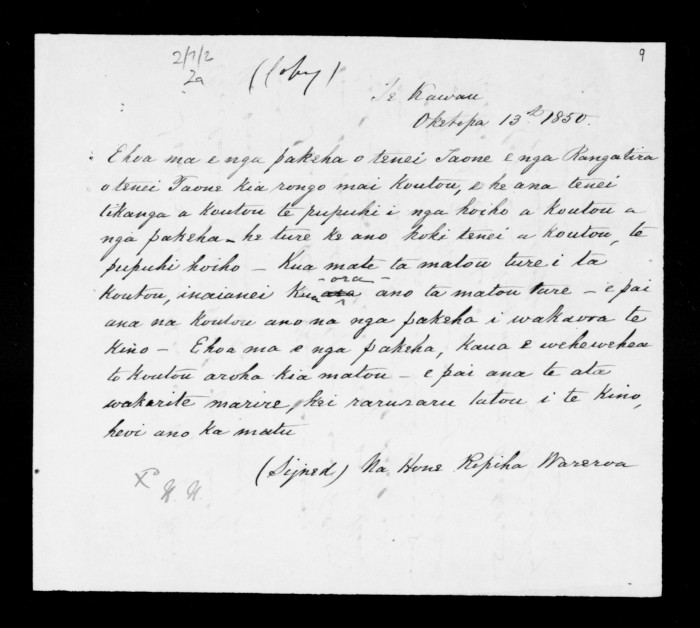 9
2/7/2
2a
(Copy)
Te Kawau
Oketopa 13th 1850.
E hoa ma e nga pakeha o tenei Taone e nga Rangatira
o tenei Taone kia rongo mai koutou, e he ana tenei
tikanga a koutou te pupuhi i nga hoiho a koutou a
nga pakeha - he ture ke ano hoki tenei a koutou, te
pupuhi hoiho - Kua mate ta matou ture i ta
koutou, inaianei Kua ora ano ta matou ture - e pai
ana na koutou ano na nga pakeha i wakaora te
kino - E hoa ma e nga pakeha, kaua e wehewehea
to koutou aroha kia matou - e pai ana te ata
wakarite marire, kei raruraru tatou i te kino,
heoi ano ka mutu
(Signed) Na Hone Ropiha Wareroa